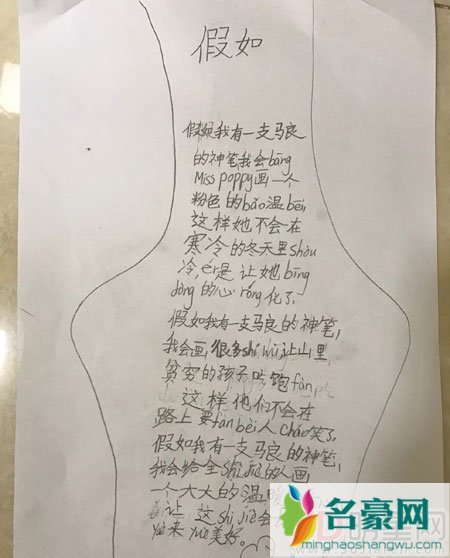 假如
假如我有一支马良
的神笔我会bāng
Miss poppy画一个
粉色的bǎo温bēi,
这样她不会在
寒冷的冬天里shòu
冷,ér是让她bīng
dòng的心róng化了
假如我有一支马良的神笔,
我会画很多shí wù让山里,
贫穷的孩子吃饱fàn
这样他们不会在
路上要fàn bèi人cháo笑了
假如我有一支马良的神笔,
我会给全shì jiè的人画
一个大大的温
让这shì jiè会
来 美好。
名豪网
minghaoshangwu.com